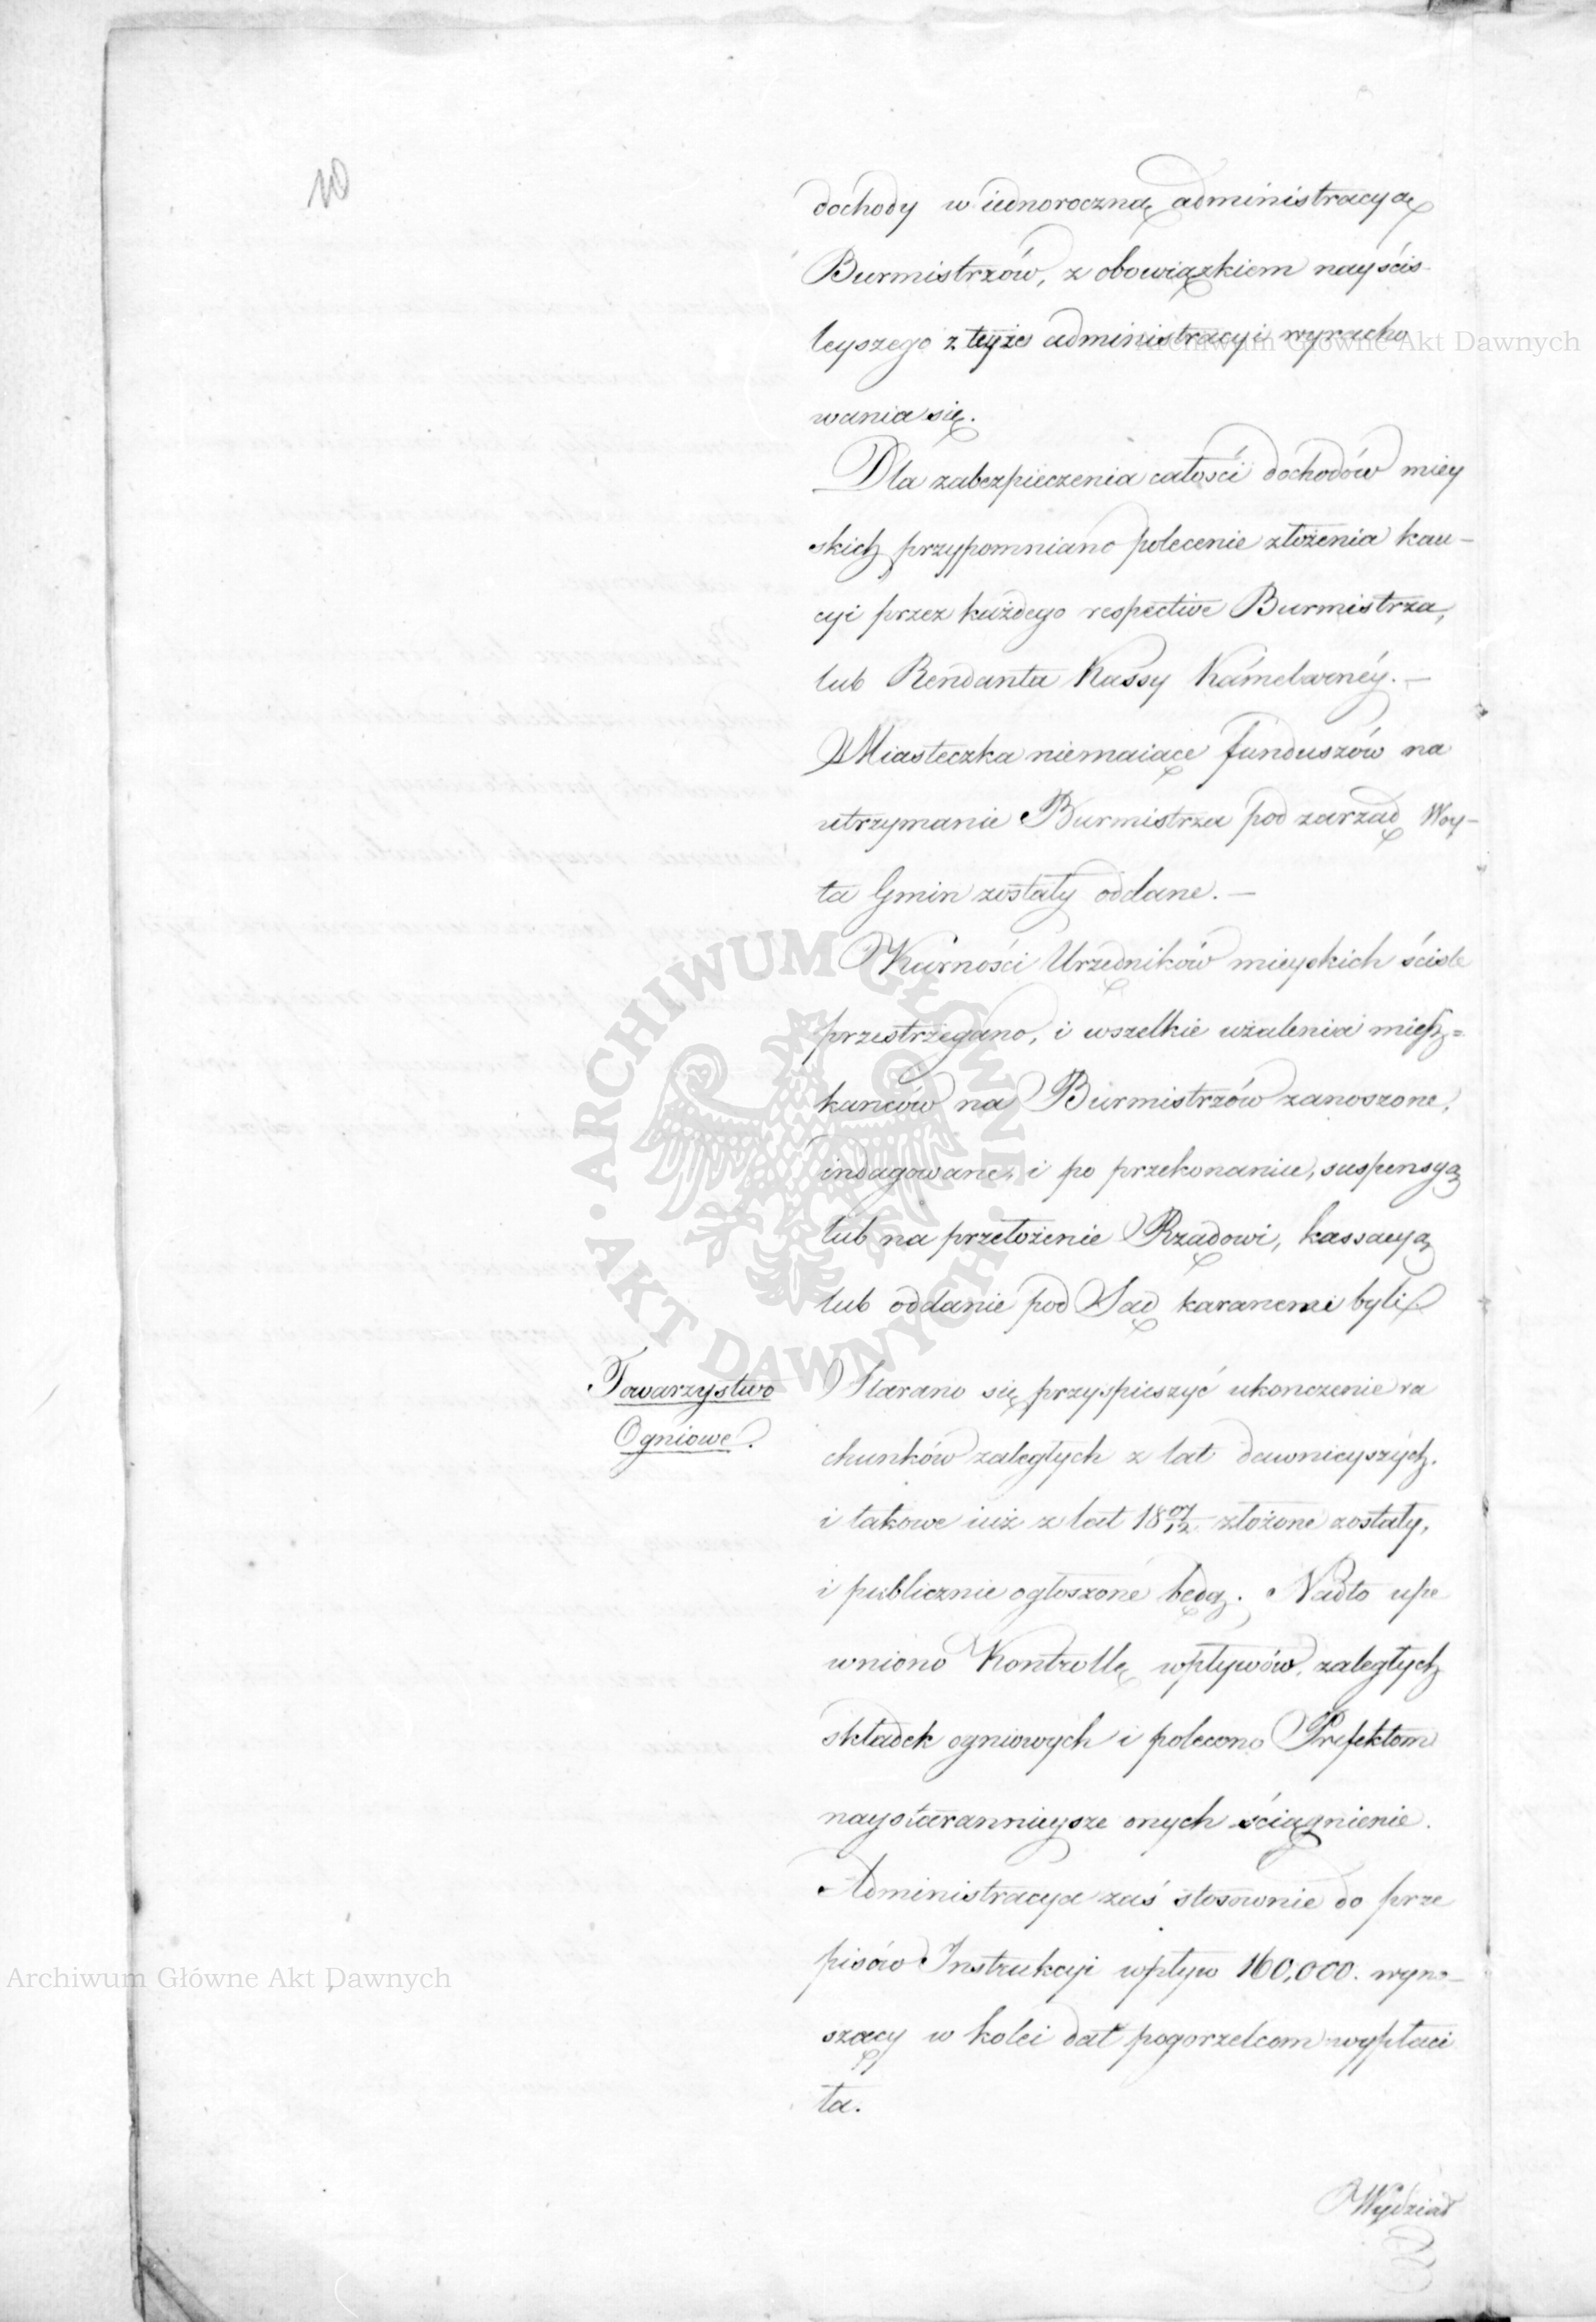 10
dochody w iednoroczną administracyą
Burmistrzów, z obowiązkiem nayściś
leyszego z teyże administracyi wyracho
wania się.
Dla zabezpieczenia całości dochodów miey
skich przypomniano polecenie złożenia kau-
cyi przez każdego respective Burmistrza,
lub Rendanta Kassy Kamelarnéy. —
Miasteczka niemaiące funduszów na
utrzymanie Burmistrza pod zarząd Woy-
ta Gmin zostały oddane. —
Karności Urzędników mieyskich ściśle
przestrzegano, i wszelkie użalenia miesz=
kańców na Burmistrzów zanoszone,
indagowane, i po przekonaniu, suspensyą
lub na przełożenie Rządowi, kassacyą
lub oddanie pod Sąd karanemi byli.
Towarzystwo
Ogniowe.
Starano się przyspieszyć ukończenie ra
chunków zaległych z lat dawnieyszych.
i takowe iuż z lat 18 07/12 złożone zostały,
i publicznie ogłoszone będą. Nadto upe
wniono Kontrollę wpływów zaległych
składek ogniowych i polecono Prefektom
naystarannieysze onych ściągnienie.
Administracya zaś stosownie do prze
pisów Instrukcyi wpływ 160,000. wyno-
szący w kolei dat pogorzelcom wypłaci
ła.
Wydział
Archiwum Główne Akt Dawnych
Archiwum Główne Akt Dawnych
ARCHIWUM GŁÓWNE · AKT DAWNYCH ·